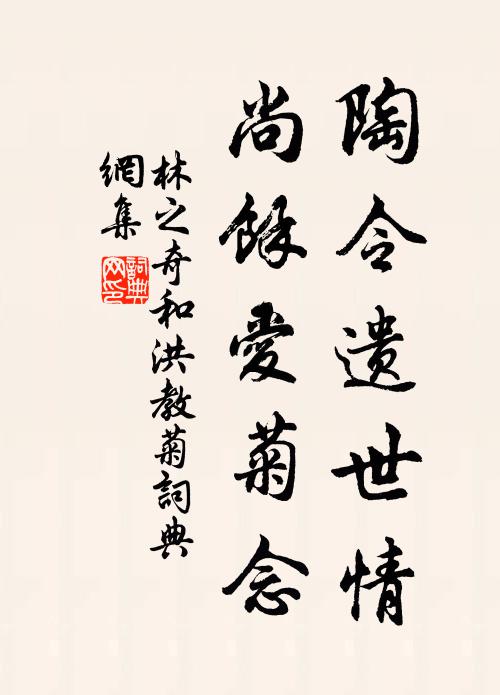 陶令遺世情
尚餘愛菊念
林之奇和洪教菊詞典
網集
詞典網印